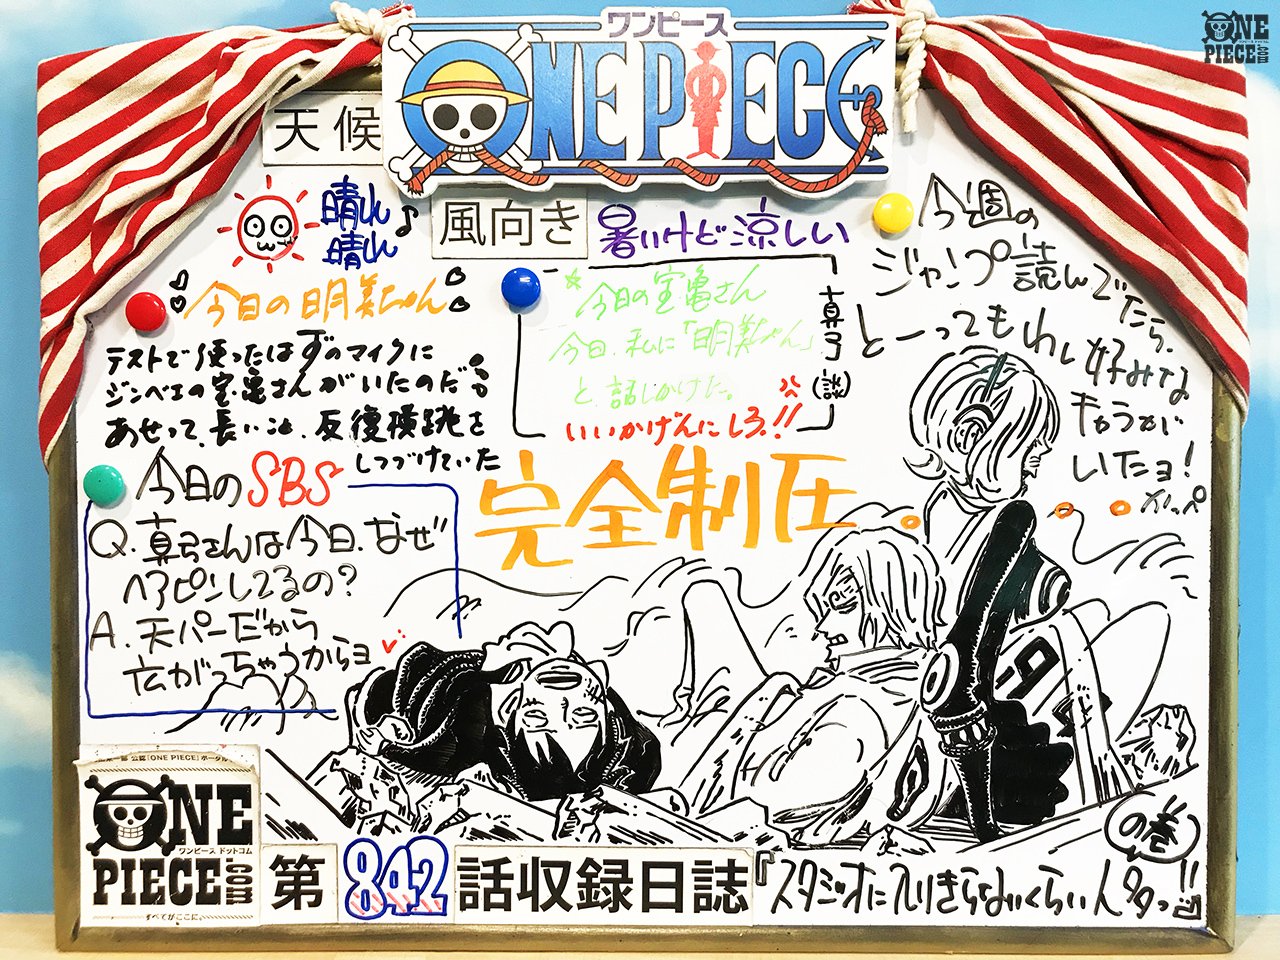 ワンピース
ONE PIECE
ONE
PIECE
.com
天候
晴れ♪
晴れ
風向き
暑いけど涼しい
今週の
ジャンプ読んでたら、
とーってもわし好みな
キャラが
いたョ!
カッペ
今日の明美ちゃん
テストで使ったはずのマイクに
ジンベエの宝亀さんがいたのだ!!
あせって、長いこと、反復横跳を
しつづけていた
今日の宝亀さん
今日、私に「明美ちゃん」
と、話しかけた。
いいかげんにしろ!!
真弓(談)
今日のSBS
Q.真弓さんは今日、なぜ
ヘアピンしてるの?
A.天パーだから
広がっちゃうからョ
完全制圧
の巻
原作 公認「ONE PIECE」ポータル
ONE
ワンピース ドットコム
PIECE
.com
すべてがここに。
第842話収録日誌『スタジオに入りきらないくらい人タタっ!!』